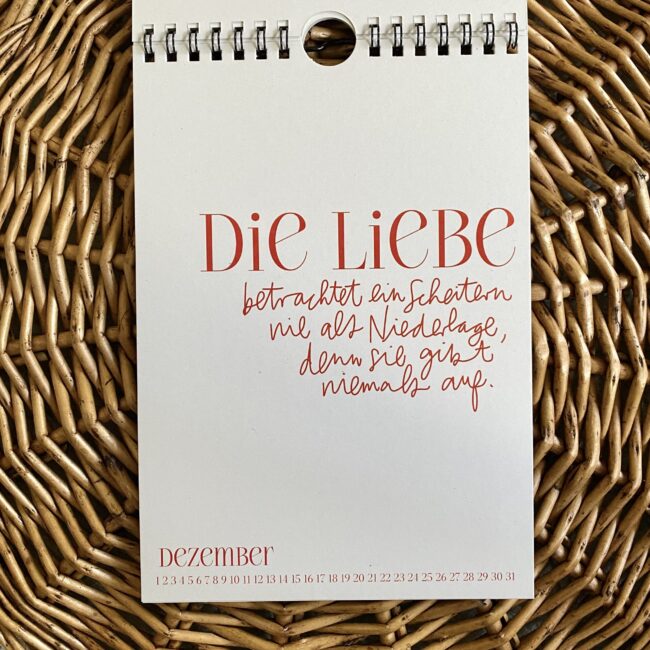 Die Liebe
betrachtet ein Scheitern
nie als Niederlage,
denn sie gibt
niemals auf.
Dezember
1 2 3 4 5 6 7 8 9 10 11 12 13 14 15 16 17 18 19 20 21 22 23 24 25 26 27 28 29 30 31